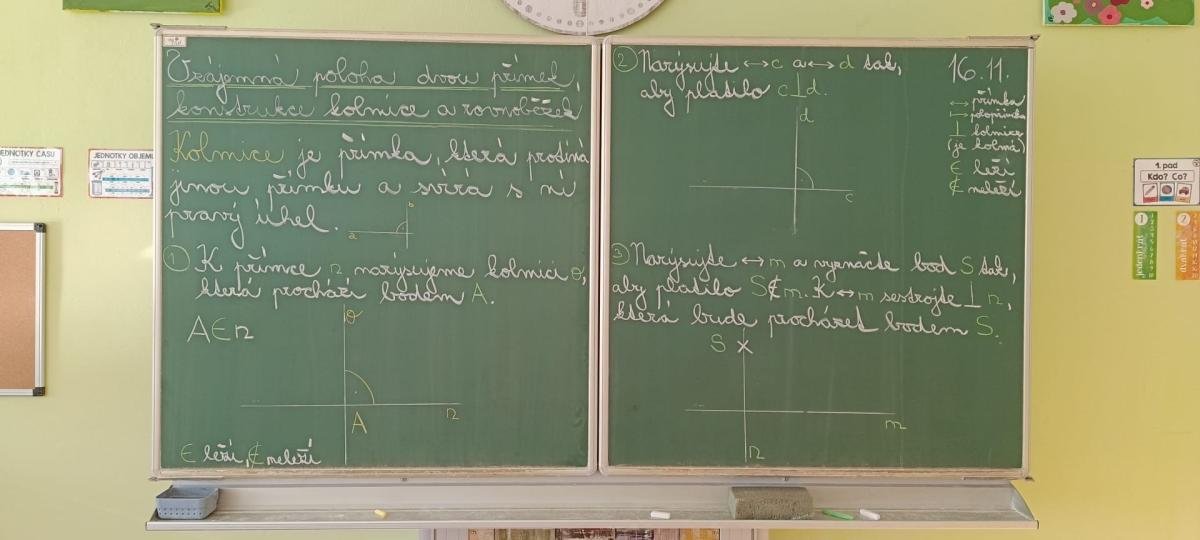 Vzájemná poloha dvou přímek,
konstrukce kolmice a rovnoběžek
Kolmice je přímka, která protíná
jinou přímku a svírá s ní
pravý úhel.
b
a
① K přímce n narýsujeme kolmici o,
která prochází bodem A.
A∈n
o
A
n
∈ leží, ∉ neleží
② Narýsujte ↔c a ↔d tak,
aby platilo c⊥d.
d
c
16.11.
↔ přímka
↦ polopřímka
⊥ kolmice
(je kolmá)
∈ leží
∉ neleží
③ Narýsujte ↔m a vyznačte bod S tak,
aby platilo S∉m. K ↔m sestrojte ⊥ n,
která bude procházet bodem S.
S
m
n
JEDNOTKY ČASU
JEDNOTKY OBJEMU
1. pád
Kdo? Co?
1
jedenkrát
2
dvakrát